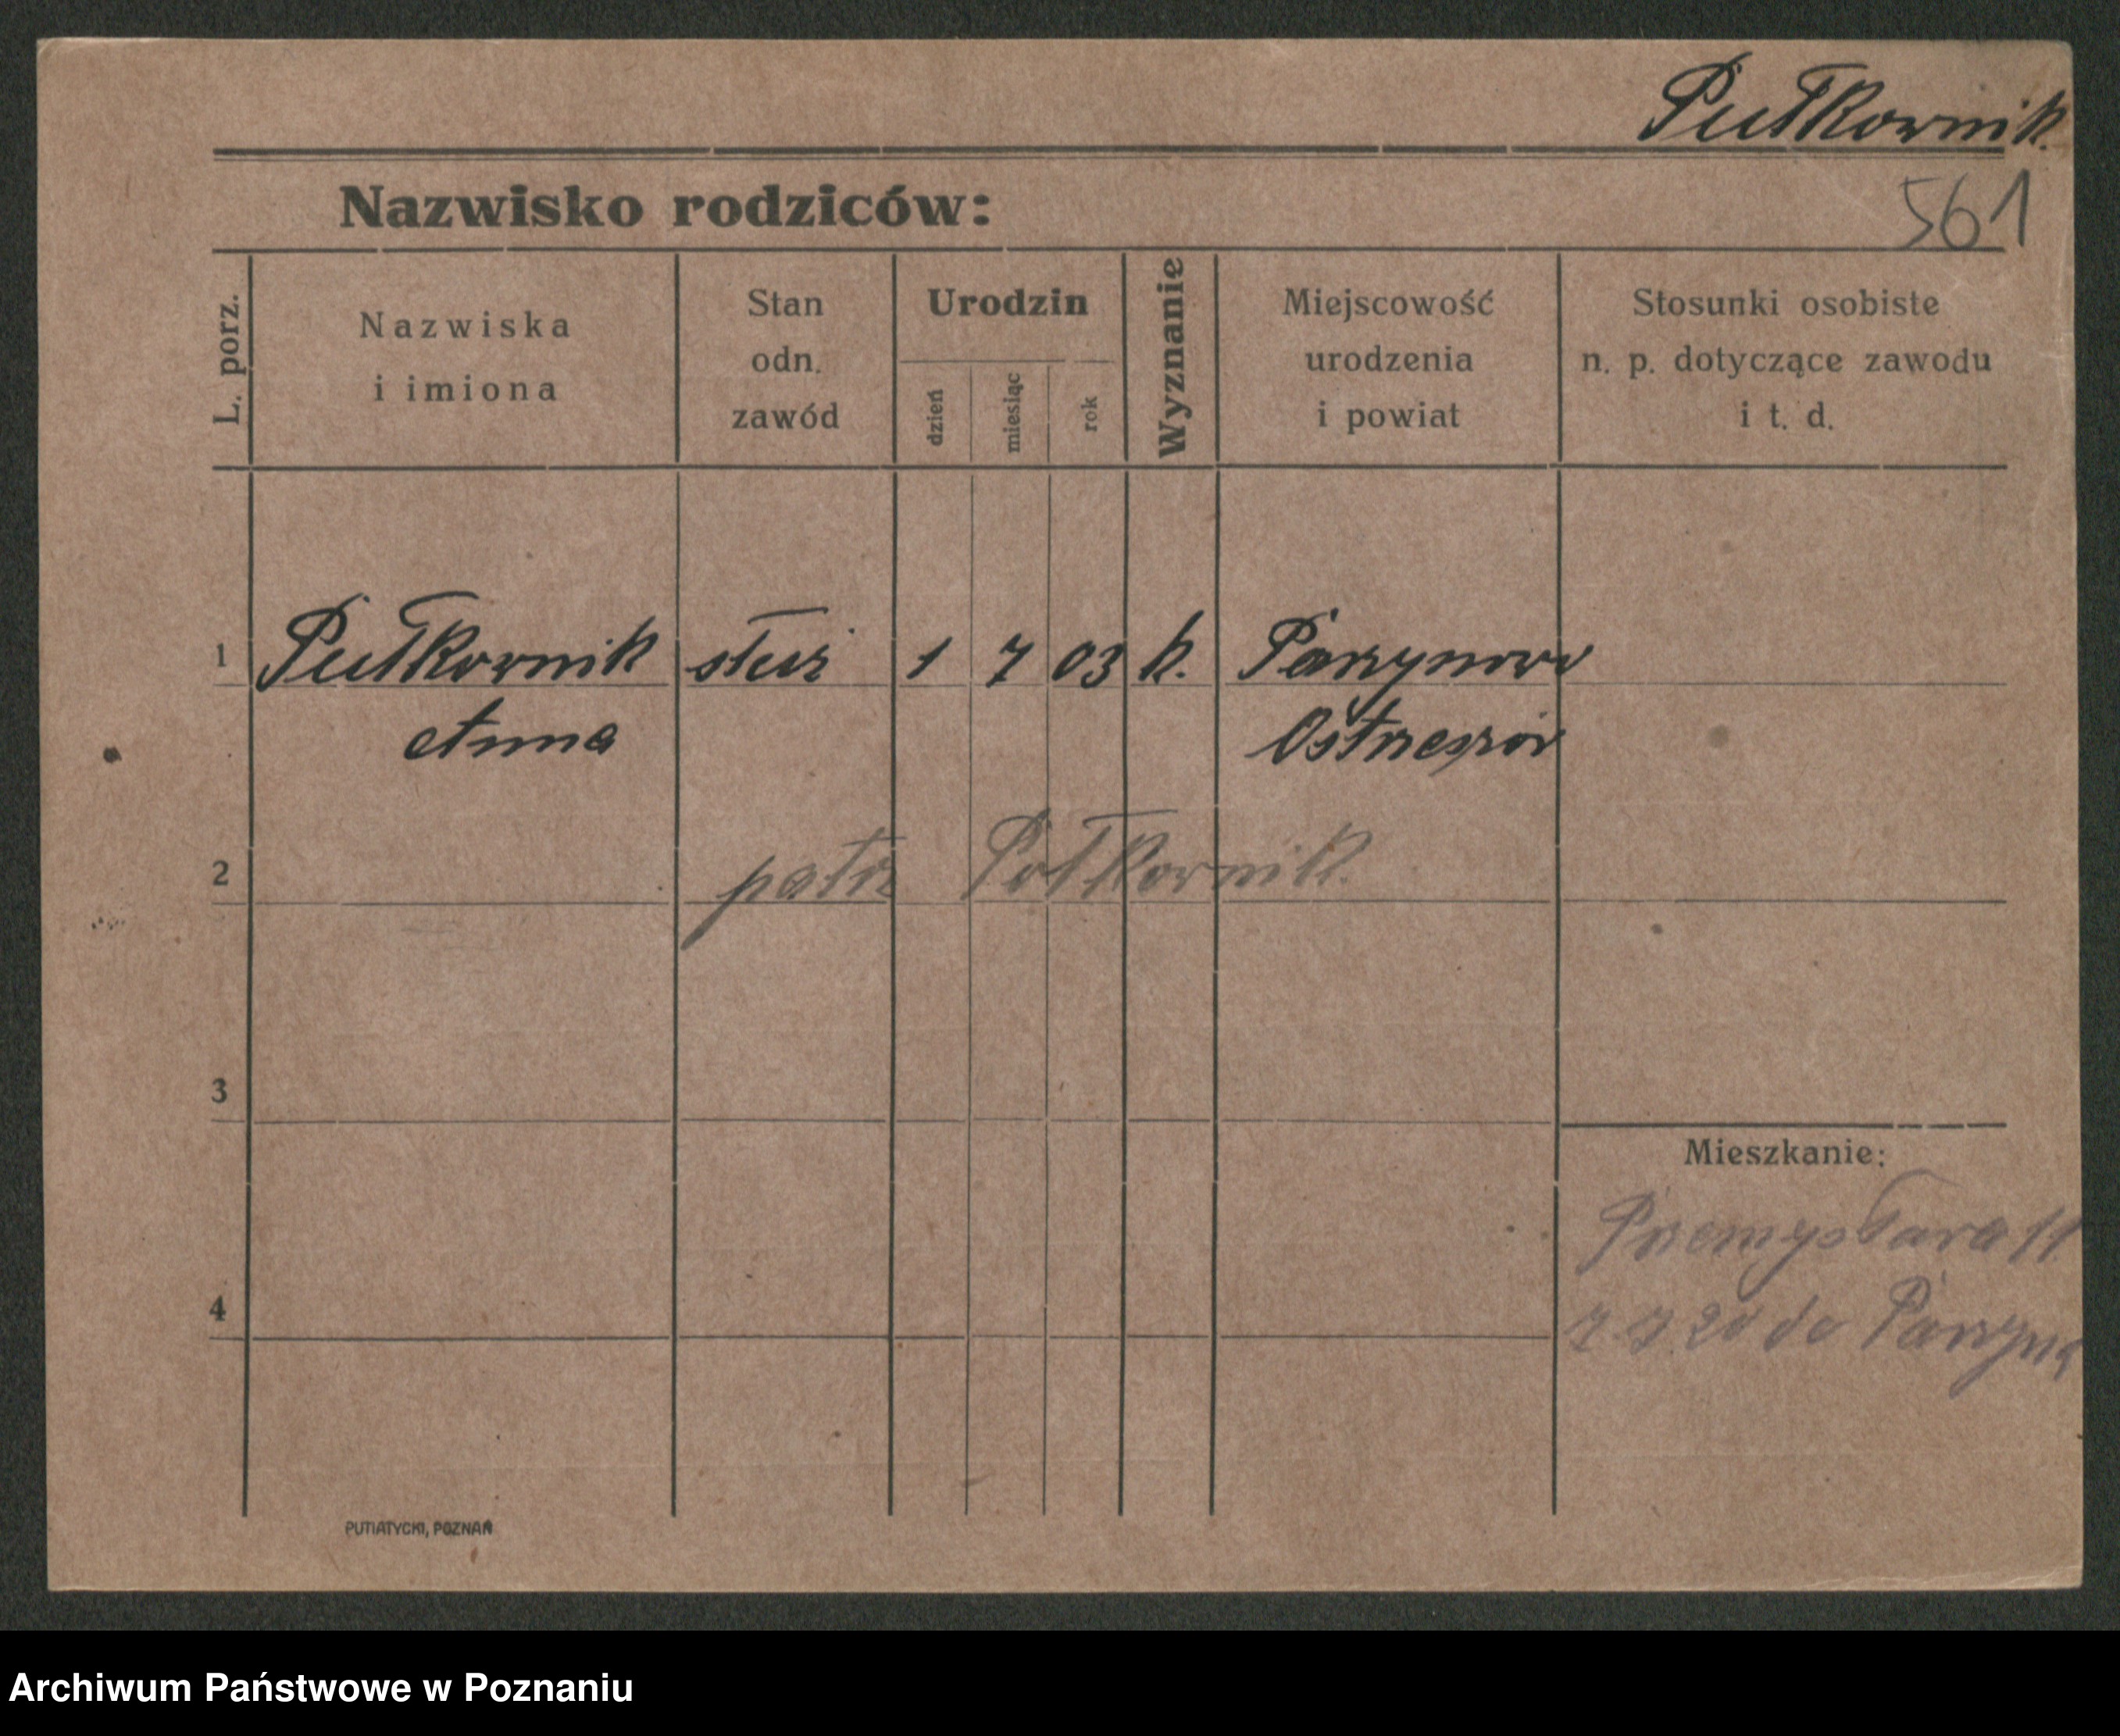 Pułkownik.
Nazwisko rodziców:
561
L. porz.
Nazwiska i imiona
Stan odn. zawód
Urodzin
dzień
miesiąc
rok
Wyznanie
Miejscowość urodzenia i powiat
Stosunki osobiste n. p. dotyczące zawodu i t. d.
1 Pułkownik służ 1 7 03 k. Parzynowo
Anna Ostrzeszów
2 patrz Połkownik.
3
Mieszkanie:
Przemysława 11
4
20 do Parzyna
PUTIATYCKI, POZNAŃ
Archiwum Państwowe w Poznaniu